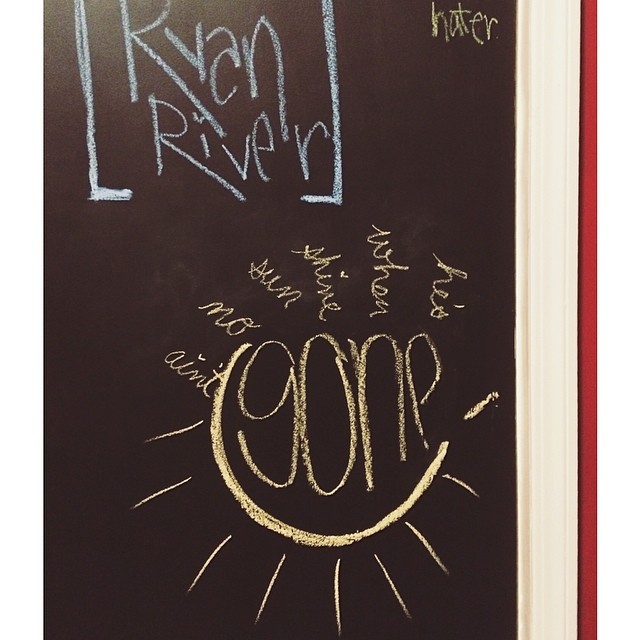 Ryan
River
hater
ain't no sun shine when he's
gone